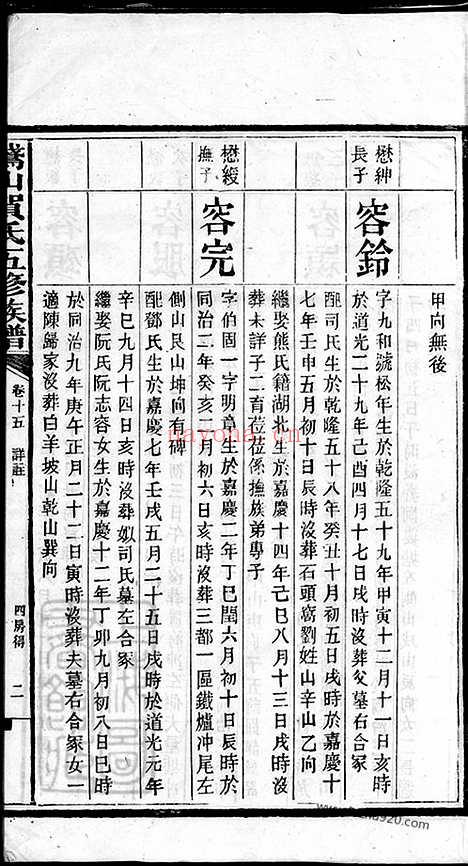 甲向無後
懋紳
長子
容鈴
字九和號松年生於乾隆五十九年甲寅十二月十一日亥時
於道光二十九年己酉四月十七日戌時沒葬父墓右合冢
配司氏生於乾隆五十八年癸丑十月初五日戌時於嘉慶十
七年壬申五月初十日辰時沒葬石頭窩劉姓山辛山乙向
繼娶熊氏籍湖北生於嘉慶十四年己巳八月十三日戌時沒
葬未詳子二育蒞蒞係撫族弟學子
懋綬
撫子
容完
字伯固一字明章生於嘉慶二年丁巳閏六月初十日辰時於
同治二年癸亥 月初六日亥時沒葬三都一區鐵爐冲尾左
側山艮山坤向有碑
配鄧氏生於嘉慶七年壬戌五月二十五日戌時於道光元年
辛巳九月十四日亥時沒葬姒司氏墓左合冢
繼娶阮氏阮志容女生於嘉慶十二年丁卯九月初八日巳時
於同治九年庚午正月二十二日寅時沒葬夫墓右合冢女一
適陳歸家沒葬白羊坡山乾山巽向
山賀氏五修族譜
卷十五
詳註
四房得
二
nayona.cn